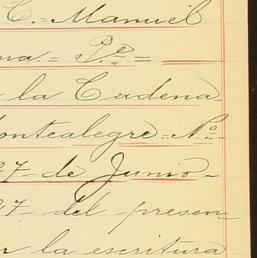 C. Manuel
na = P.e =
la Cadena
ontealegre = No.
27 = de Junio =
27 = del presen
r la escritura